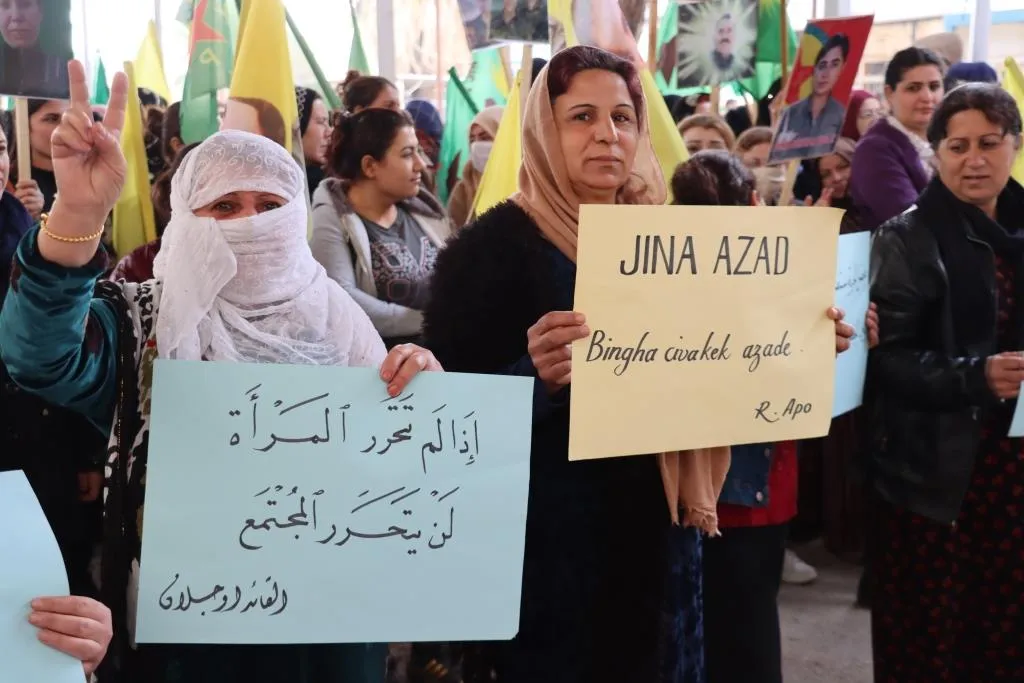 إِذَا لَم تَتَحَرَر ٱلمَرْأَة
لَنْ يَتَحَرَر ٱلمُجْتَمَع
القائد اوجلان
JINA AZAD
Bingha civakek azade.
R. Apo